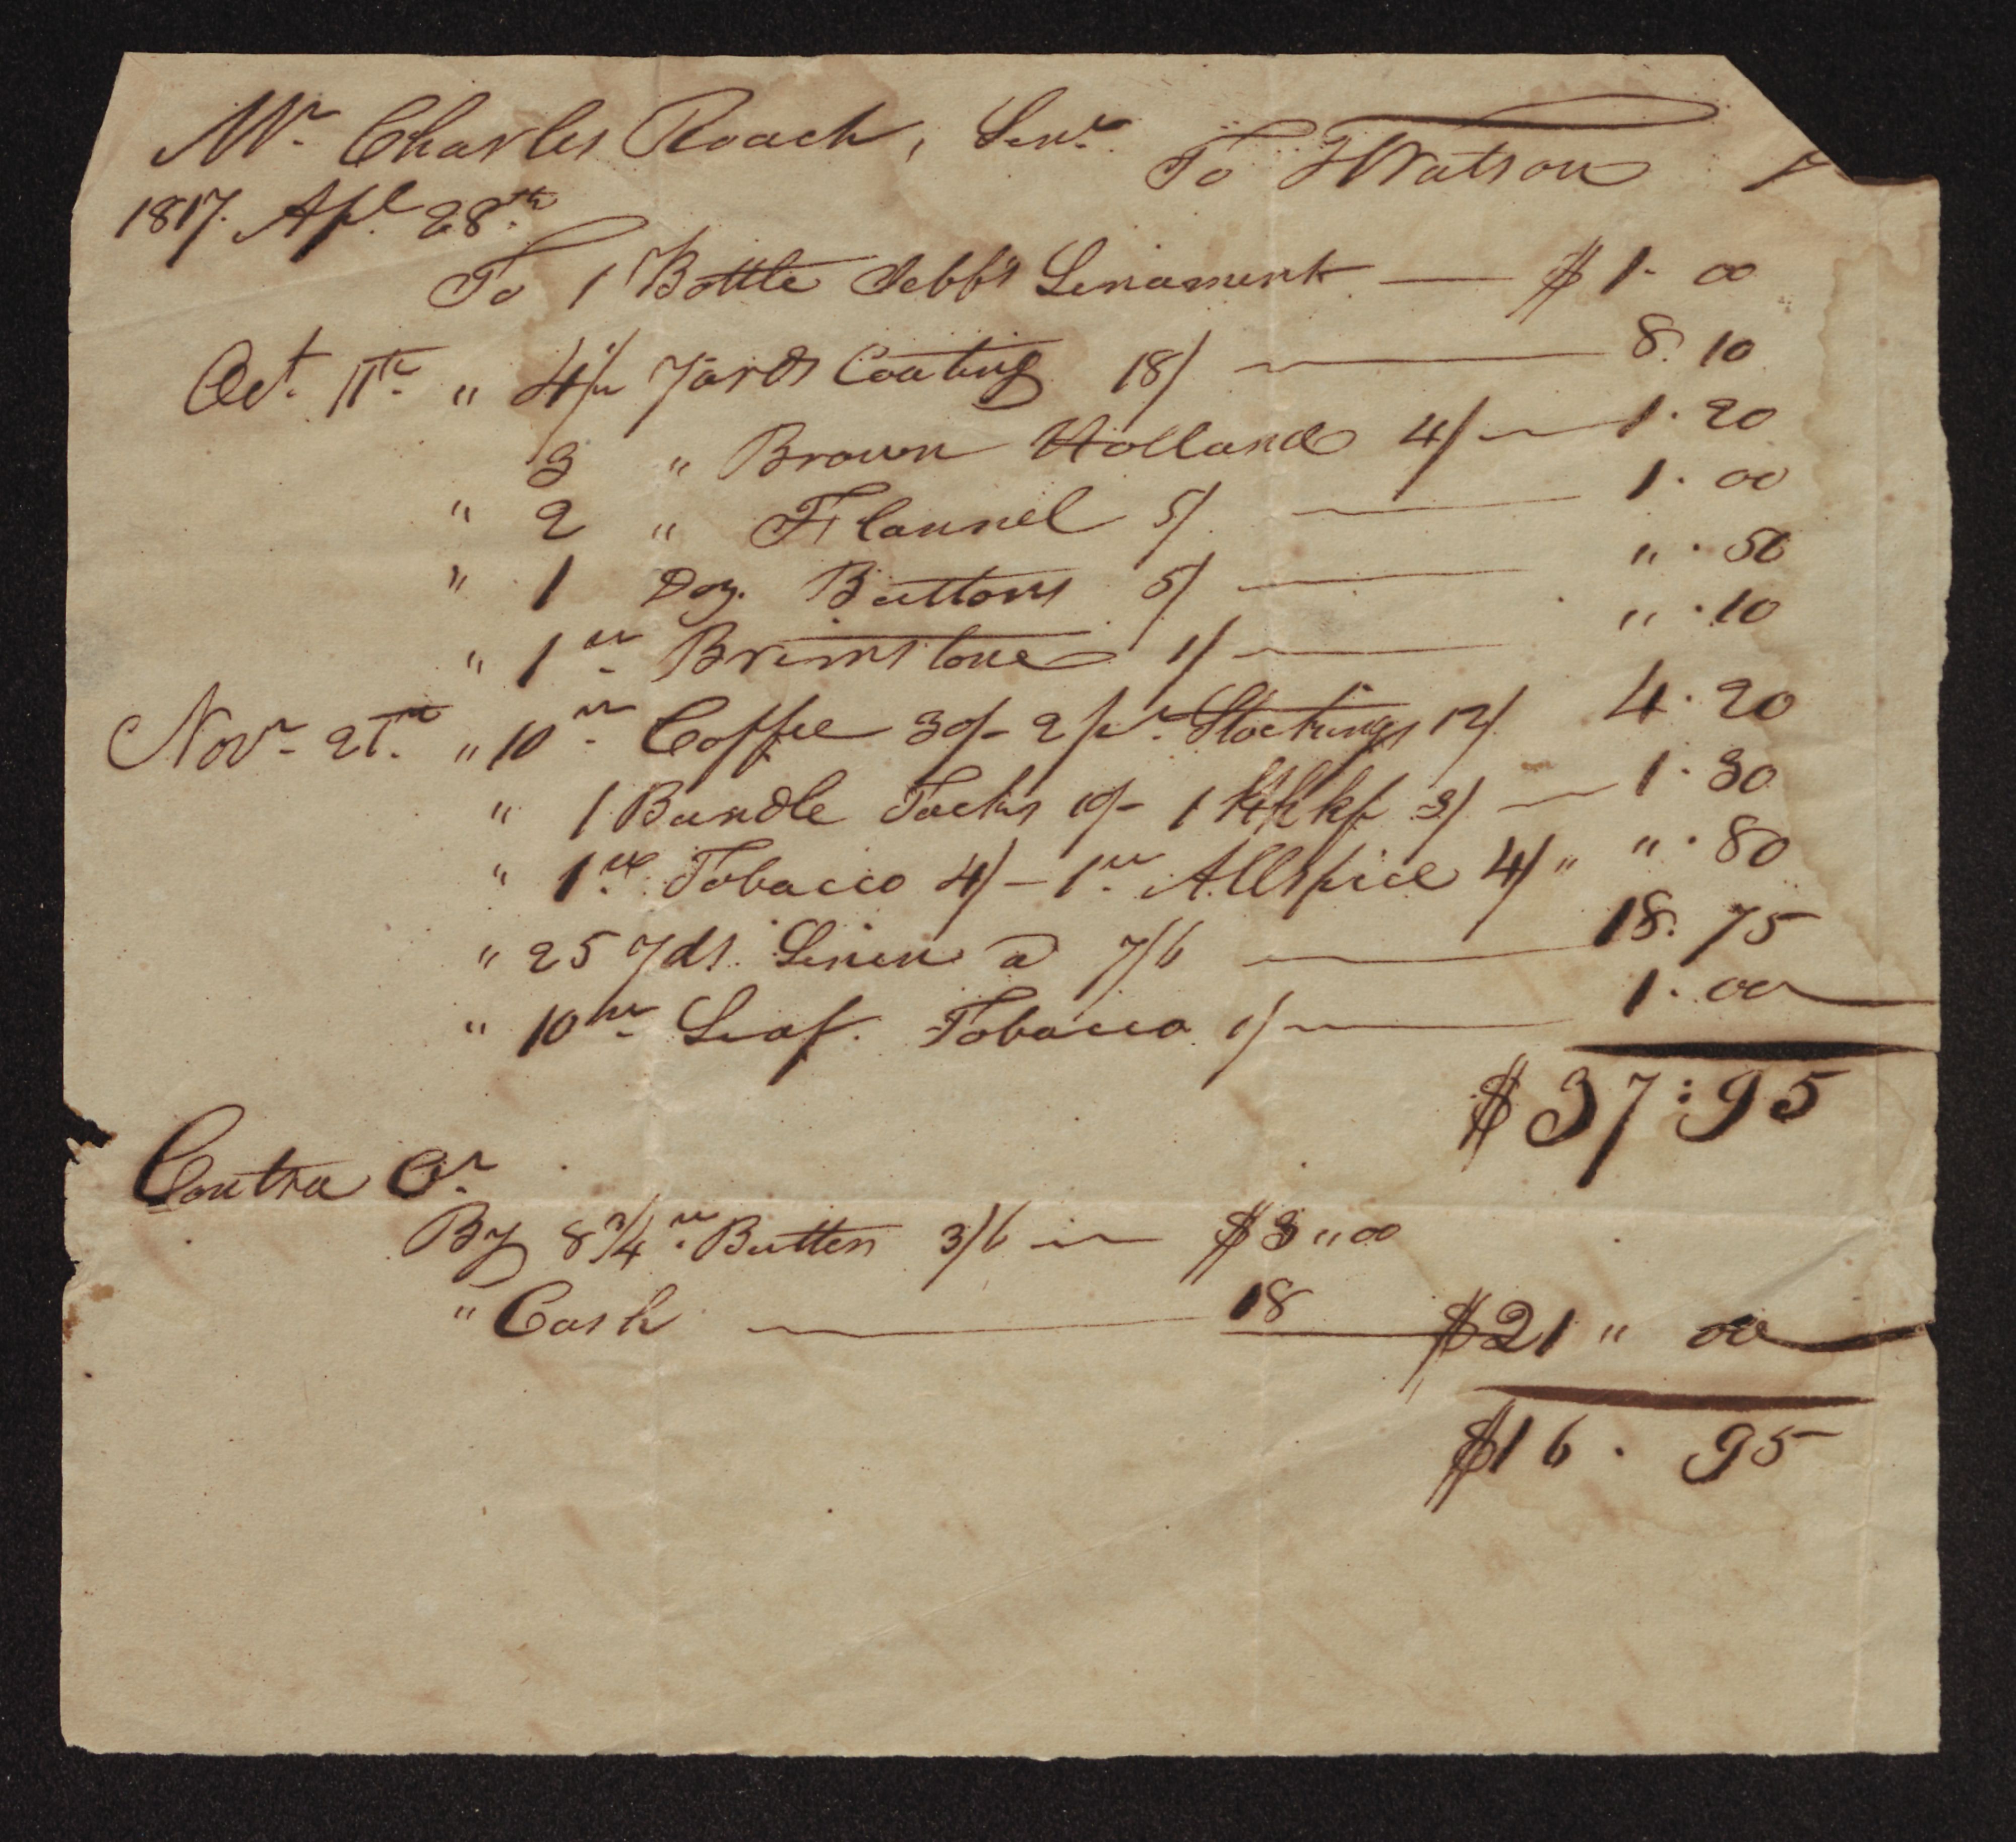 Mr. Charles Roach, Senr. To J Watson
1817. Apl. 28th
To 1 Bottle Jebb's Linament — $ 1. 00
Oct. 11th " 4½ Yards Coating 18/ — 8. 10
3 " Brown Holland 4/ — 1. 20
" 2 " Flannel 5/ — 1. 00
" 1 Doz. Buttons 5/ — " . 50
" 1 lb. Brimstone 1/ — " . 10
Novr. 21st " 10 lb. Coffee 30/- 2 pr. Stockings 12/ 4. 20
" 1 Bundle Tacks 10/- 1 Hhkf 3/ — 1. 30
" 1 lb. Tobacco 4/- 1 lb. Allspice 4/ " " . 80
" 25 Yds. Linen a 7/6 — 18. 75
" 10 lb. Leaf. Tobacco 1/ — 1. 00
$ 37:95
Contra Cr.
By 8 3/4 lb. Butter 3/6 — $ 3 " 00
" Cash — 18 $ 21 " 00
$ 16. 95